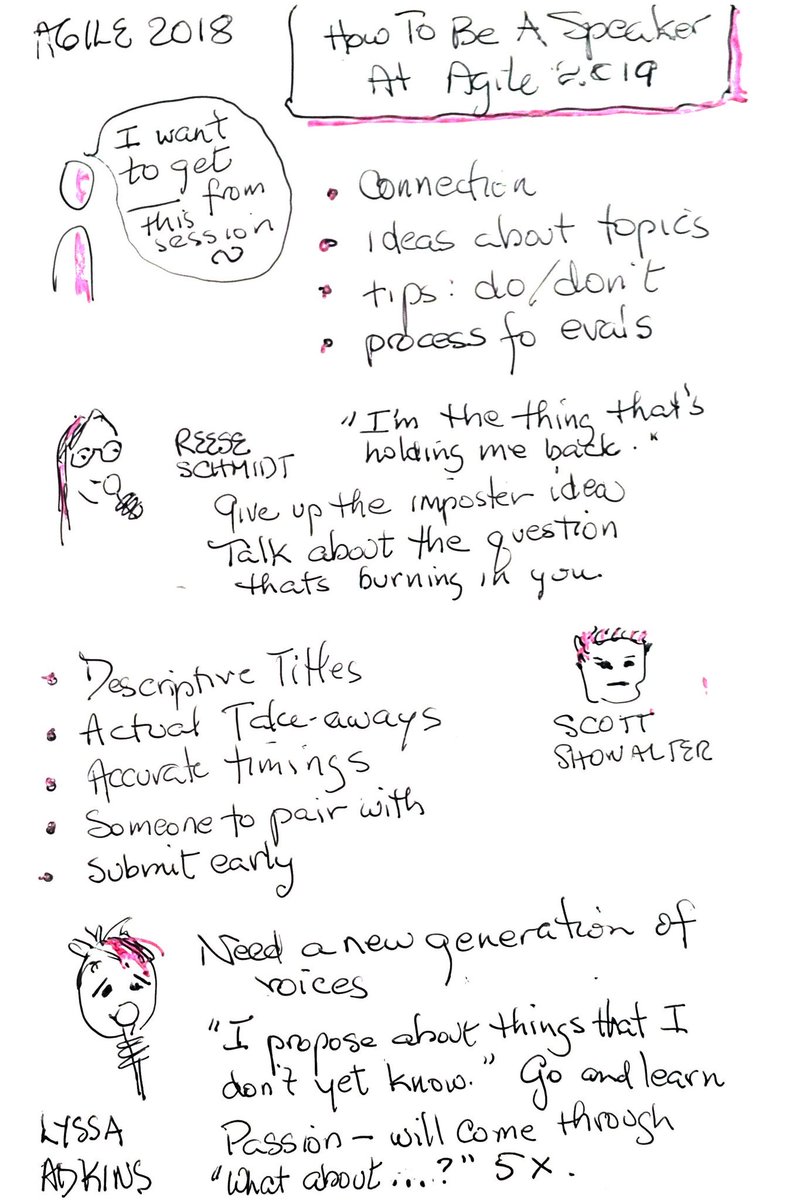 AGILE 2018
How To Be A Speaker
At Agile 2019
I want
to get
___ from
this
session
• Connection
• ideas about topics
• tips: do/don't
• process fo evals
REESE
SCHMIDT
"I'm the thing that's
holding me back."
Give up the imposter idea
Talk about the question
thats burning in you.
• Descriptive Titles
• Actual Take-aways
• Accurate timings
• Someone to pair with
• Submit early
SCOTT
SHOWALTER
Need a new generation of
voices
"I propose about things that I
don't yet know." Go and learn
Passion – will come through
"What about ...?" 5X.
LYSSA
ADKINS